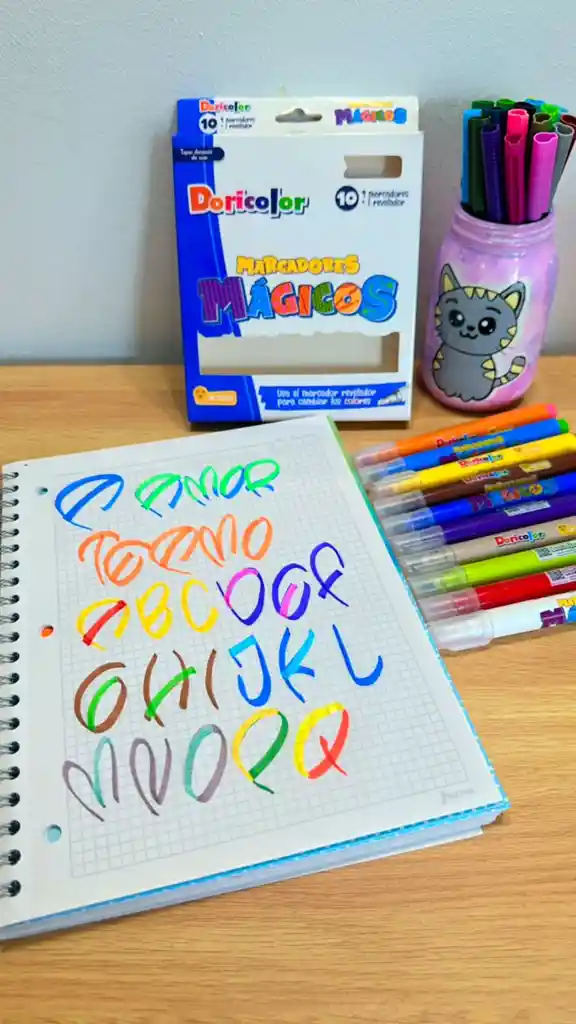 Doricolor
10 9 marcadores
+ 1 revelador
MÁGICOS
Doricolor
10 9 marcadores
+ 1 revelador
MARCADORES
MÁGICOS
Usa el marcador revelador
para cambiar los colores
A AMOR
TE AMO
ABCDEF
GHIJKL
MNOPQ
Doricolor
Doricolor
MÁGICOS
Doricolor